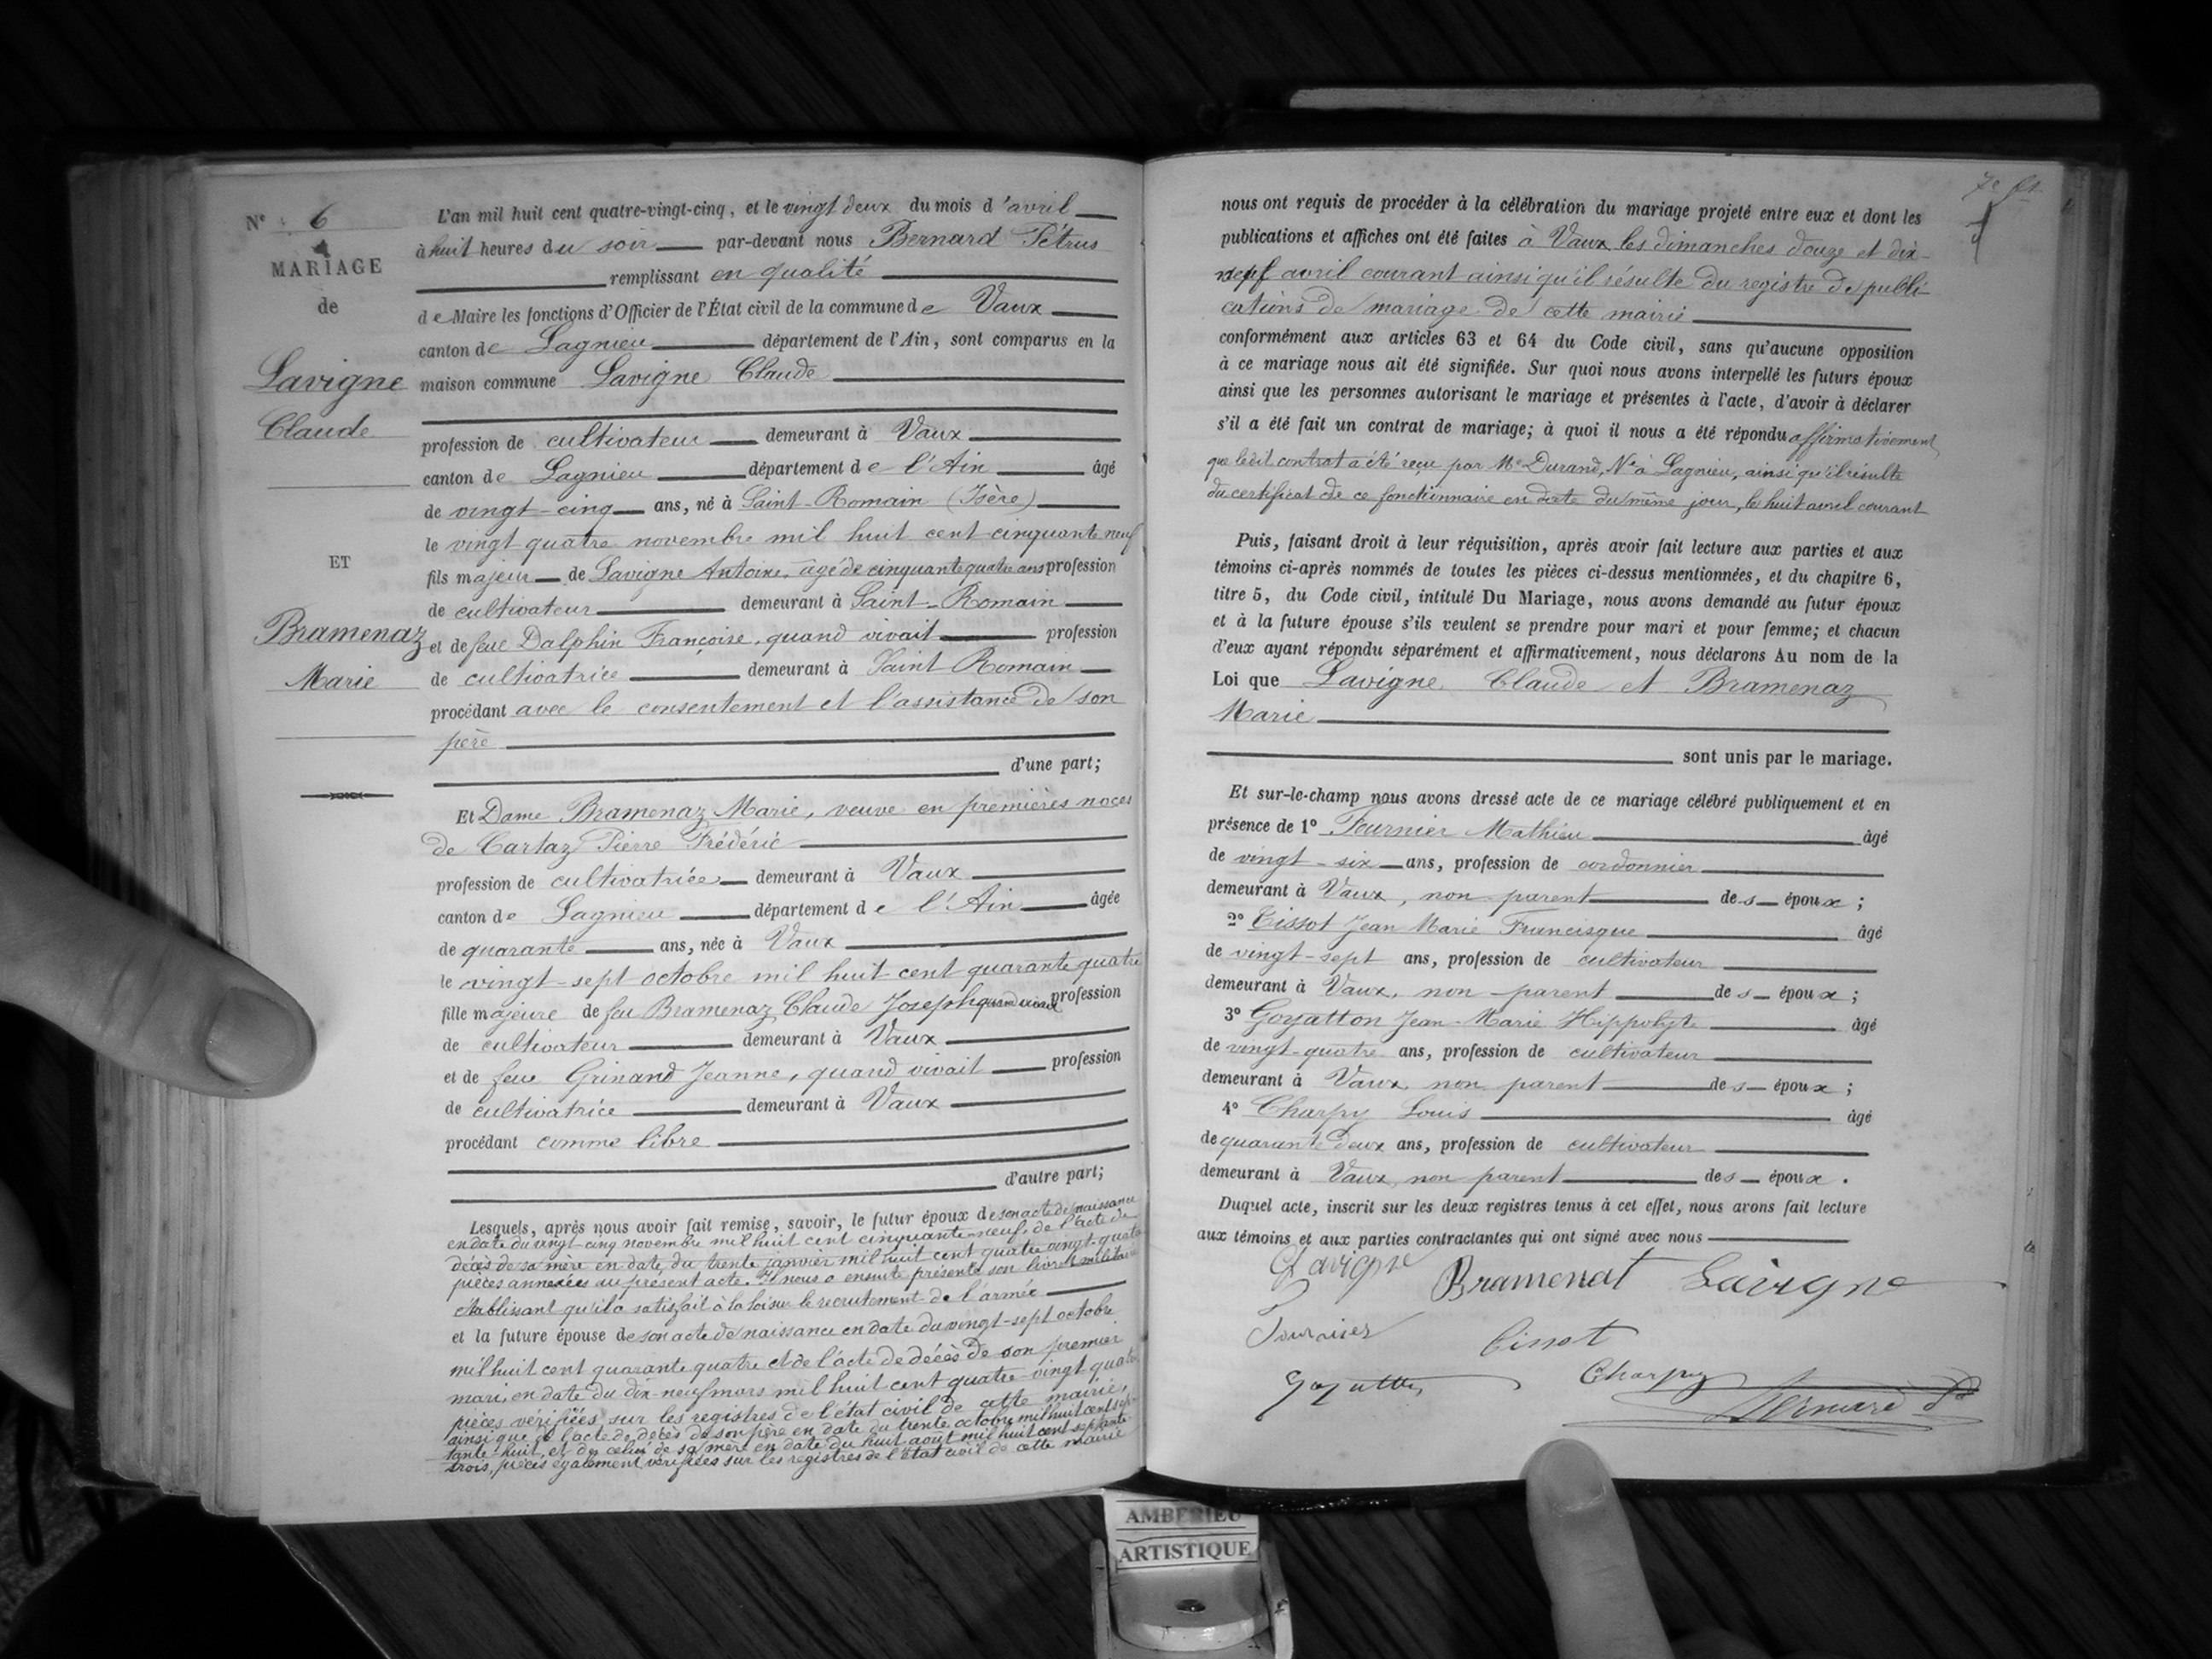 N° 6
MARIAGE
de
Lavigne
Claude
ET
Bramenaz
Marie
L'an mil huit cent quatre-vingt-cinq, et le vingt deux du mois d'avril
à huit heures du soir par-devant nous Bernard Pétrus
remplissant en qualité
de Maire les fonctions d'Officier de l'État civil de la commune de Vaux
canton de Lagnieu département de l'Ain, sont comparus en la
maison commune Lavigne Claude
profession de cultivateur demeurant à Vaux
canton de Lagnieu département de l'Ain âgé
de vingt-cinq ans, né à Saint-Romain (Isère)
le vingt quatre novembre mil huit cent cinquante neuf
fils majeur de Lavigne Antoine, âgé de cinquante quatre ans profession
de cultivateur demeurant à Saint-Romain
et de feue Dalphin Françoise, quand vivait profession
de cultivatrice demeurant à Saint Romain
procédant avec le consentement et l'assistance de son
père
d'une part;
Et Dame Bramenaz Marie, veuve en premières noces
de Cartaz Pierre Frédéric
profession de cultivatrice demeurant à Vaux
canton de Lagnieu département de l'Ain âgée
de quarante ans, née à Vaux
le vingt-sept octobre mil huit cent quarante quatre
fille majeure de feu Bramenaz Claude Joseph quand vivait profession
de cultivateur demeurant à Vaux
et de feue Grinand Jeanne, quand vivait profession
de cultivatrice demeurant à Vaux
procédant comme libre
d'autre part;
Lesquels, après nous avoir fait remise, savoir, le futur époux de son acte de naissance
en date du vingt-cinq novembre mil huit cent cinquante-neuf, de l'acte de
décès de sa mère en date du trente janvier mil huit cent quatre vingt-quatre
pièces annexées au présent acte. Il nous a ensuite présenté son livret militaire
établissant qu'il a satisfait à la loi sur le recrutement de l'armée
et la future épouse de son acte de naissance en date du vingt-sept octobre
mil huit cent quarante quatre et de l'acte de décès de son premier
mari, en date du dix-neuf mars mil huit cent quatre-vingt quatre
pièces vérifiées sur les registres de l'état civil de cette mairie,
ainsi que de l'acte de décès de son père en date du trente octobre mil huit cent sep-
tante-huit, et de celui de sa mère en date du huit août mil huit cent septante
trois, pièces également vérifiées sur les registres de l'état civil de cette mairie
7e
nous ont requis de procéder à la célébration du mariage projeté entre eux et dont les
publications et affiches ont été faites à Vaux les dimanches douze et dix-
neuf avril courant ainsi qu'il résulte du registre de publi-
cations de mariage de cette mairie
conformément aux articles 63 et 64 du Code civil, sans qu'aucune opposition
à ce mariage nous ait été signifiée. Sur quoi nous avons interpellé les futurs époux
ainsi que les personnes autorisant le mariage et présentes à l'acte, d'avoir à déclarer
s'il a été fait un contrat de mariage; à quoi il nous a été répondu affirmativement
que ledit contrat a été reçu par Me Durand, Nre à Lagnieu, ainsi qu'il résulte
du certificat de ce fonctionnaire en date du même jour, le huit avril courant
Puis, faisant droit à leur réquisition, après avoir fait lecture aux parties et aux
témoins ci-après nommés de toutes les pièces ci-dessus mentionnées, et du chapitre 6,
titre 5, du Code civil, intitulé Du Mariage, nous avons demandé au futur époux
et à la future épouse s'ils veulent se prendre pour mari et pour femme; et chacun
d'eux ayant répondu séparément et affirmativement, nous déclarons Au nom de la
Loi que Lavigne Claude et Bramenaz
Marie
sont unis par le mariage.
Et sur-le-champ nous avons dressé acte de ce mariage célébré publiquement et en
présence de 1° Fournier Mathieu âgé
de vingt-six ans, profession de cordonnier
demeurant à Vaux, non parent des époux;
2° Tissot Jean Marie Francisque âgé
de vingt-sept ans, profession de cultivateur
demeurant à Vaux, non parent des époux;
3° Goyatton Jean-Marie Hippolyte âgé
de vingt-quatre ans, profession de cultivateur
demeurant à Vaux, non parent des époux;
4° Charpy Louis âgé
de quarante deux ans, profession de cultivateur
demeurant à Vaux, non parent des époux.
Duquel acte, inscrit sur les deux registres tenus à cet effet, nous avons fait lecture
aux témoins et aux parties contractantes qui ont signé avec nous
C Lavigne Bramenat Lavigne
Fournier Tissot
Charpy
Bernard
AMBERIEU
ARTISTIQUE